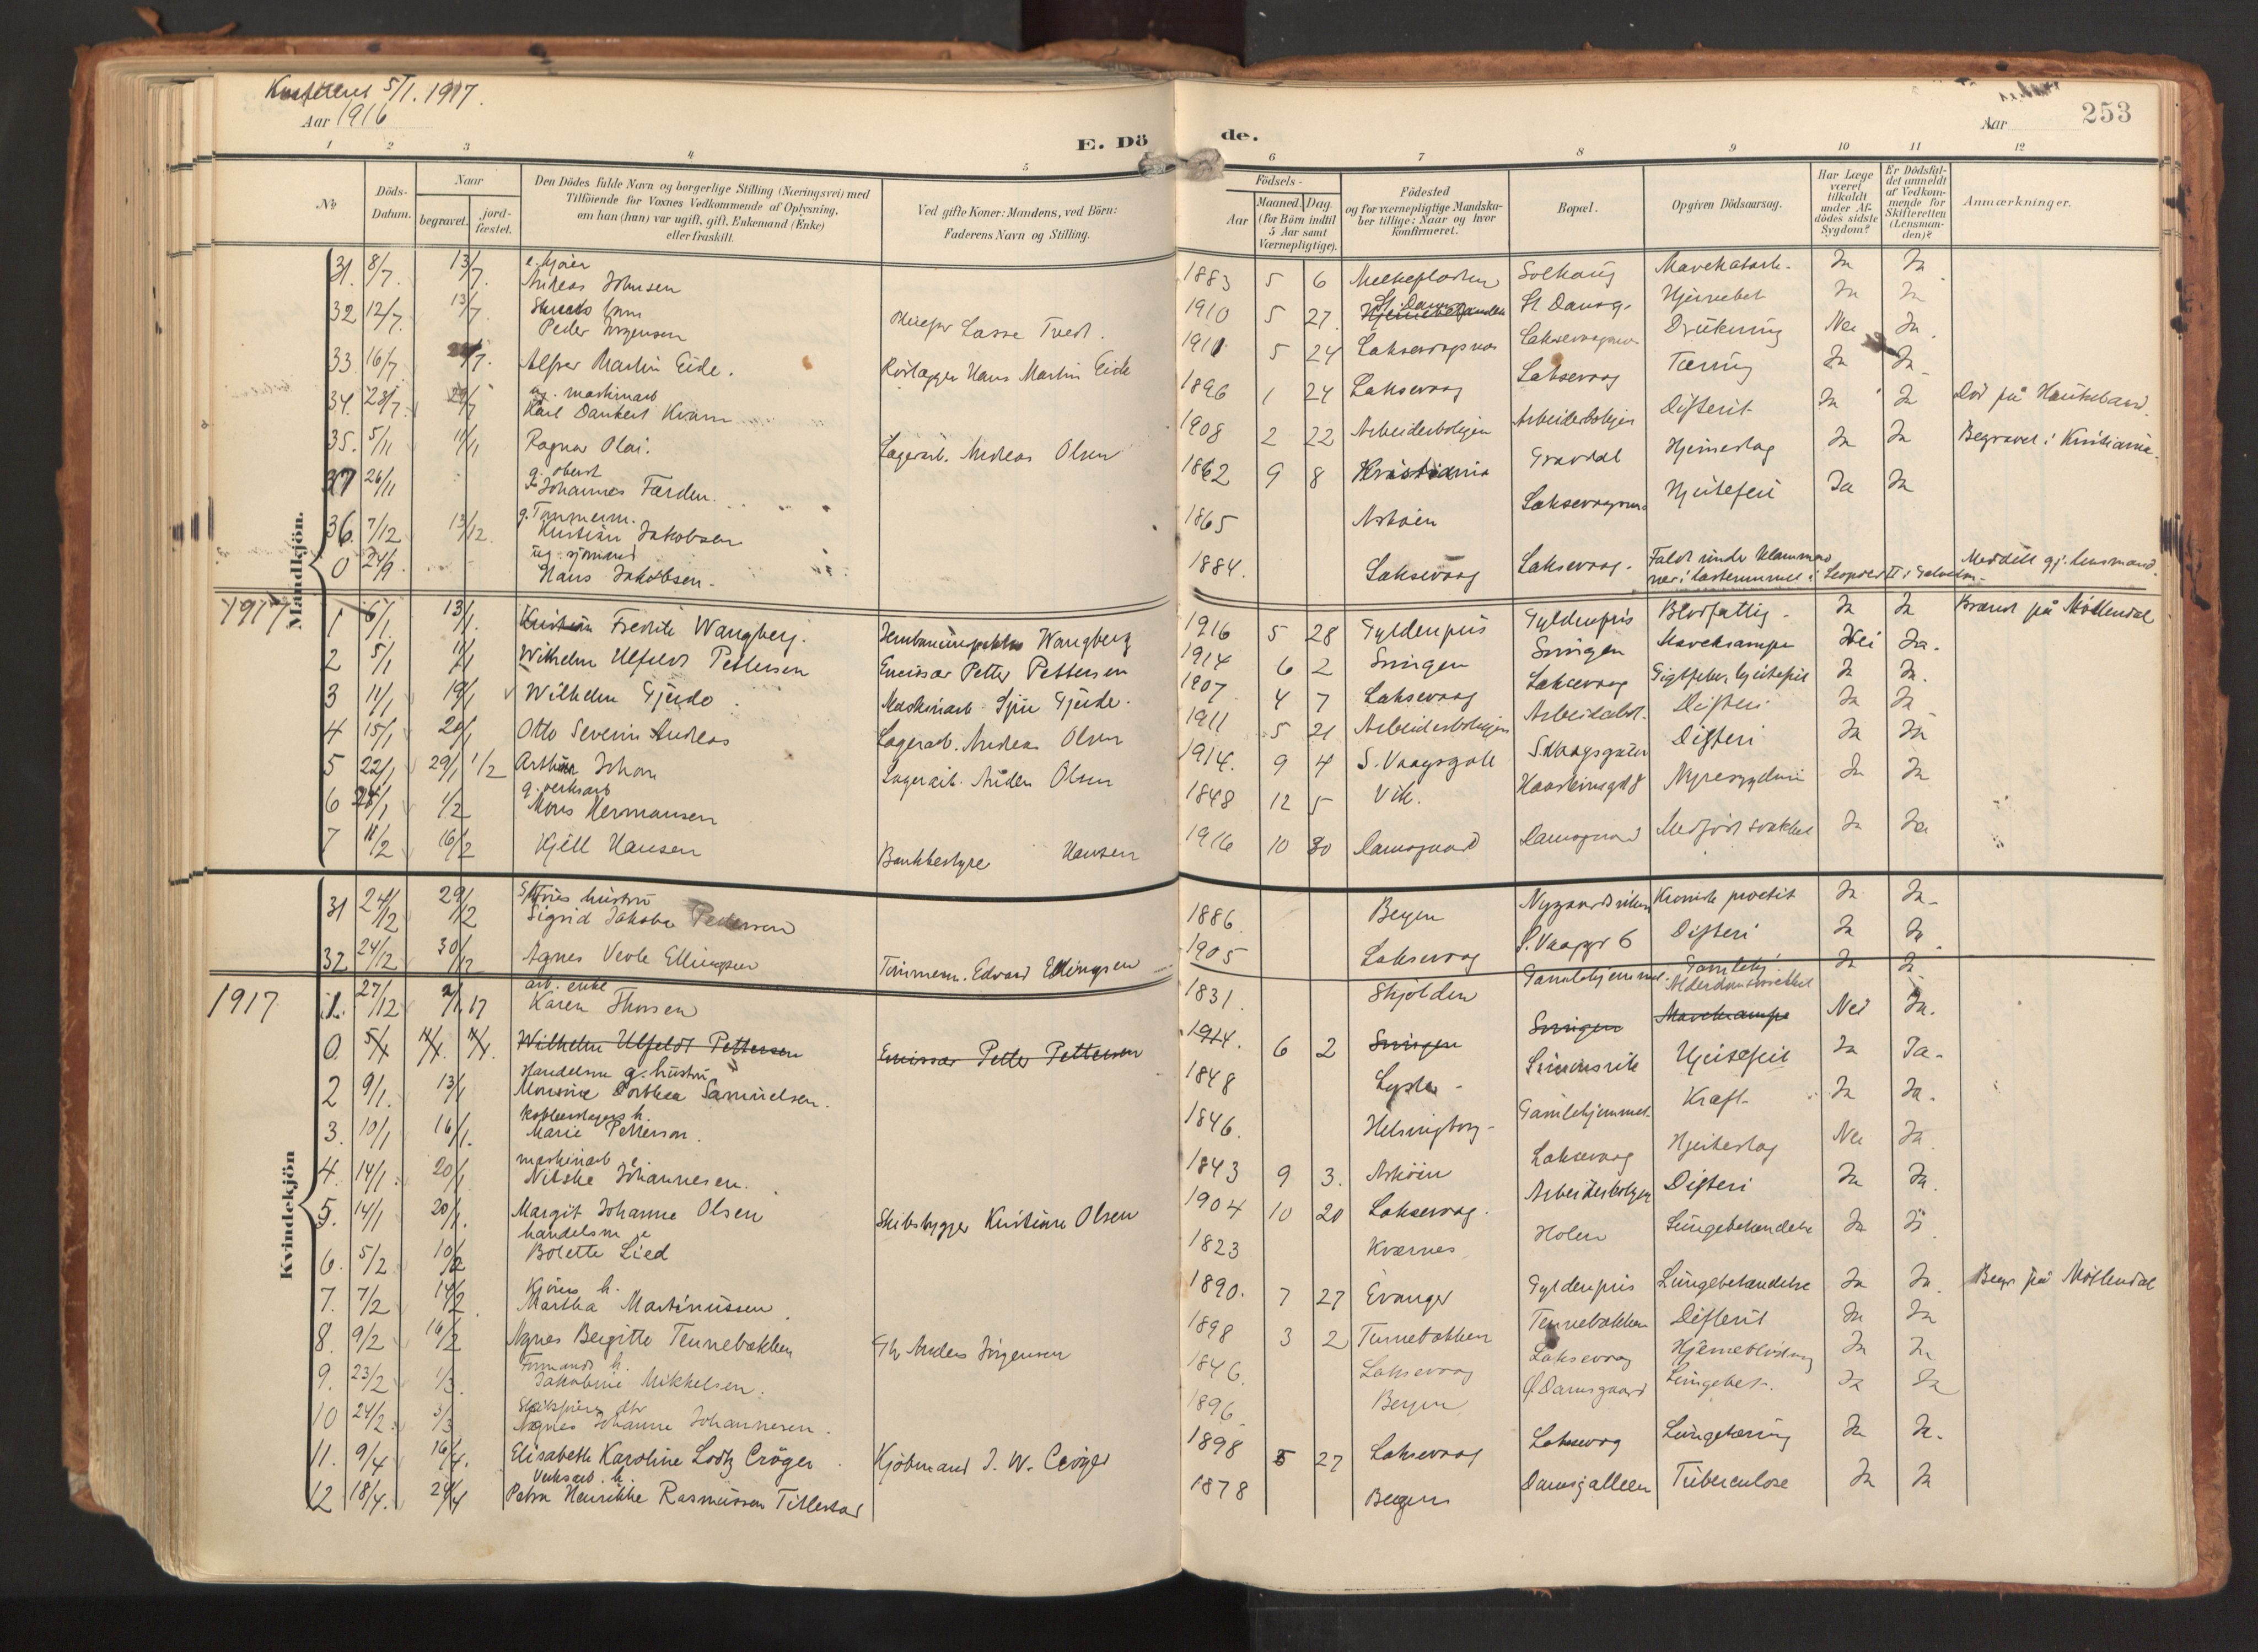 5/1. 1917.
Aar 1916
E. Dö
de.
Aar
253
1 2 3 4 5 6 7 8 9 10 11 12
No
Döds-Datum.
Naar
begravet.
jord-fæstet.
Den Dödes fulde Navn og borgerlige Stilling (Næringsvei) med
Tilföiende for Voxnes Vedkommende af Oplysning,
om han (hun) var ugift, gift, Enkemand (Enke)
eller fraskilt.
Ved gifte Koner: Mandens, ved Börn:
Faderens Navn og Stilling.
Födsels-
Aar
Maaned. Dag.
(for Börn indtil
5 Aar samt
Værnepligtige).
Födested
og for værnepligtige Mandska-
ber tillige: Naar og hvor
konfirmeret.
Bopæl.
Opgiven Dödsaarsag.
Har Læge
været
tilkaldt
under Af-
dödes sidste
Sygdom?
Er Dödsfal-
det anmeldt
af Vedkom-
mende for
Skifteretten
(Lensman-
den)?
Anmærkninger.
Mandkjön.
31. 8/7. 13/7. Andreas Johnsen 1883 5 6 Solhaug Ja Ja
32 12/7. 13/7. Peder Jörgensen Lasse Tvedt. 1910 5 27 St. Damsg. Hjernebet Ja Ja
33. 16/7 Alfser Martin Eide. Rörlægger Hans Martin Eide 1911 5 24 Laksevaagnes Laksevaagnes Drukning Nei Ja
34. 28/7. ug. maskinarb
Karl Dankert Kvam 1896 1 24 Laksevaag Laksevaag Tæring Ja Ja Död på Haukeland
35. 5/11 11/11 Ragnar Olai. Lagerarb. Andreas Olsen 1908 2 22 Arbeiderboligen Arbeiderboligen Difterit Ja Ja
37 26/11 g. oberst
Johannes Færden. 1862 9 8 Kristiania Gravdal Hjerneslag Ja Ja Begravet i Kristiania
36. 7/12 13/12. g. Tömmerm.
Kristian Jakobsen 1865 Askøen Laksevaagnes Hjertefeil Ja Ja
0 24/9. ug. sjömand
Hans Jakobsen. 1884. Laksevaag Laksevaag. Faldt Leopold II Meddelt gj. lensmand.
1917
1 6/1. 13/1. Kristian Fredrik Wangberg. Wangberg 1916 5 28 Gyldenpris Gyldenpris Blodfattig. Ja Ja Brændt på Möllendal
2 5/1 11/1 Wilhelm Ulfeldt Pettersen Emissær Petter Pettersen 1914 6 2 Svingen Svingen Mavekrampe Nei Ja.
3 11/1 19/1 Wilhelm Gjerde Maskinarb. Gjerde. 1907 4 7 Laksevaag Laksevaag Gigtfeber, hjertefeil Ja Ja.
4 15/1 20/1 Otto Severin Andreas Lagerarb. Andreas Olsen 1911 5 21 Arbeiderboligen Arbeiderbol. Difteri Ja Ja
5 22/1 29/1 1/2 Arthur Johan Lagerarb. Olsen 1914. 9 4 S. Vaagsgate S. Vaagsgaten Difteri Ja Ja
6 28/1 1/2 g. verksarb
Mons Hermansen 1848 12 5 Vik. Nyresygdom Ja Ja
7 11/2 16/2 Kjell Hansen Bankbestyre Hansen 1916 10 30 Damsgaard Damsgaard Medfödt svakhet Ja Ja
Kvindekjön
31 24/12 29/12 hustru
Sigrid Jakoba Pedersen 1886. Bergen Ja Ja
32 24/12 30/12 Agnes Ellingsen Tömmerm. Edvard Ellingsen 1905 Laksevaag S. Vaagsgt 6 Difteri Ja Ja
1917
1. 27/12 2/1 17 arb. enke
Karen Thorsen 1831. Skjolden Gamlehjemmet. Alderdomssvakhet Ja Ja
0. 5/1 11/1. 11/1. Wilhelm Ulfeldt Pettersen Emissær Petter Pettersen 1914. 6 2 Svingen Svingen Mavekrampe Nei Ja.
2 9/1. 13/1 Handelsm g. hustru
Dorthea Samuelsen. 1848 Simonsvik Hjertefeil Ja Ja.
3. 10/1 16/1. h.
Marie Petterson. 1846. Helsingborg Gamlehjemmet. Kræft. Ja Ja.
4. 14/1. 20/1 maskinarb e.
Nilske Johannesen. 1843 9 3. Askøen Laksevaag Hjerteslag Nei Ja.
5. 14/1 20/1. Margit Johanne Olsen Skibsbygger Kristian Olsen 1904 10 20 Laksevaag. Arbeiderboligen Difteri Ja Ja.
6. 5/2 10/2 handelsm e
Bolette Lied 1823 Kværnes Holen Lungebetændelse Ja Ja
7. 7/2 14/2. h.
Martha Martinussen 1890. 7 27 Evanger Gyldenpris Lungebetændelse Ja Ja Begr på Möllendal
8. 9/2 16/2 Agnes Bergitte Tennebækken Anders Jörgensen 1898 3 2 Tennebækken Tennebækken Difterit Ja Ja
9. 23/2 1/3. Formands h.
Jakobine Mikkelsen. 1846. Laksevaag Laksevaag Hjerneblödning Ja Ja
10 24/2. 3/3 dtr
Agnes Johanne Johannesen. 1896. Bergen Ø. Damsgaard Lungebet. Ja Ja
11. 9/4 16/4. Elisabeth Karoline Lodtz Cröger Kjöbmand J. W. Cröger 1898 5 27 Laksevaag Laksevaag Lungetæring Ja Ja.
12 18/4. 24/4 Verksarb. h.
Petra Henrikke Rasmussen Titlestad 1878 Bergen Damsgalleen Tuberculose Ja Ja